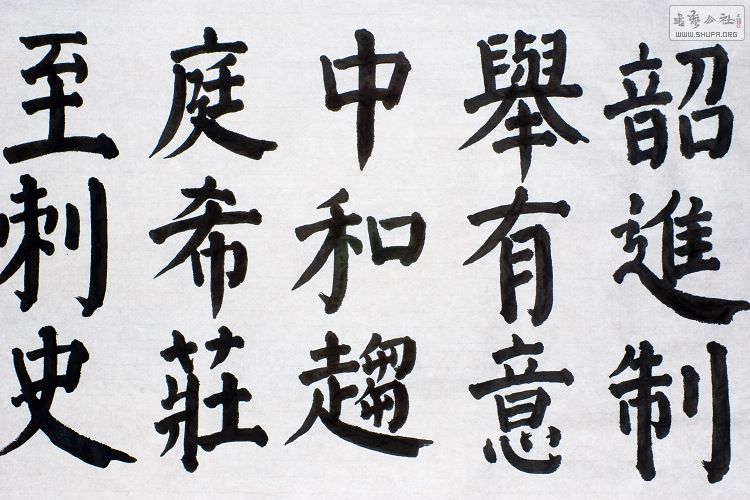 韶進制
舉有意
中和趨
庭希莊
至刺史
WWW.SHUFA.ORG